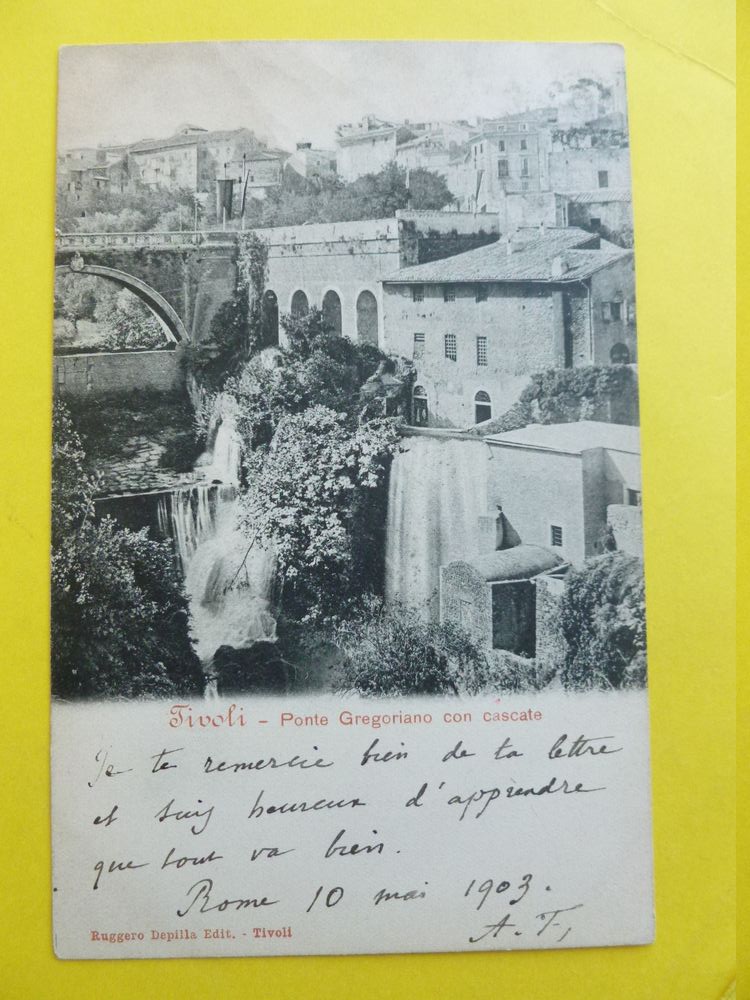 Tivoli - Ponte Gregoriano con cascate
Je te remercie bien de ta lettre
et suis heureux d'apprendre
que tout va bien.
Rome 10 mai 1903.
A. F,
Ruggero Depilla Edit. - Tivoli